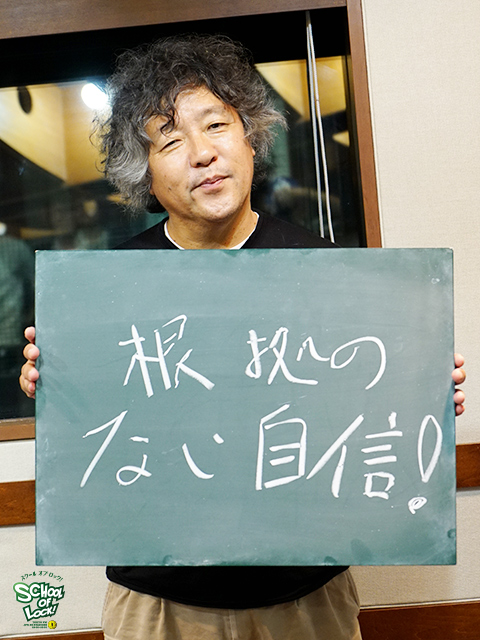 根拠の
ない自信!
スクール オブ ロック!
SCHOOL
OF
LOCK!